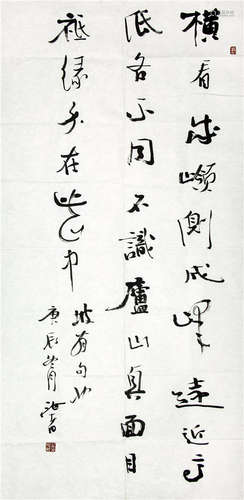 橫看成嶺側成峰遠近高
低各不同不識廬山真面目
祗緣身在此山中
坡句
庚辰月